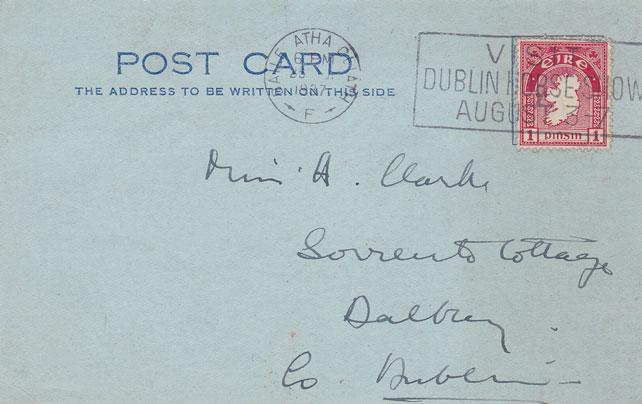 POST CARD
THE ADDRESS TO BE WRITTEN ON THIS SIDE
BAILE ATHA CLIATH
1937
F
VISIT
DUBLIN HORSE SHOW
AUGUST 3-7
EIRE
1 pinsin 1
Miss A. Clarke
Sorrento Cottage
Dalkey.
Co. Dublin